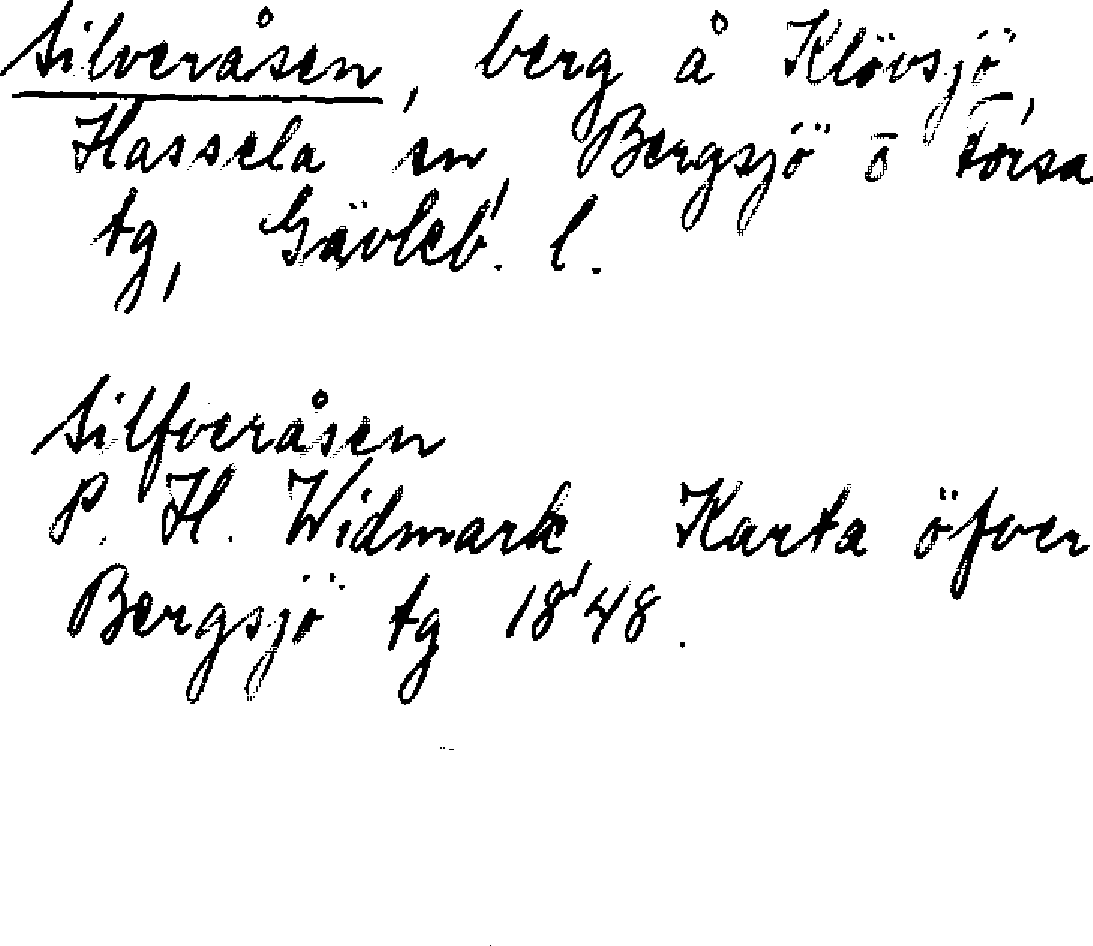 Silveråsen, berg å Klövsjö,
Hassela sn, Bergsjö o Forsa
tg, Gävleb. l.
Silfveråsen
P. H. Widmark, Karta öfver
Bergsjö tg 1848.